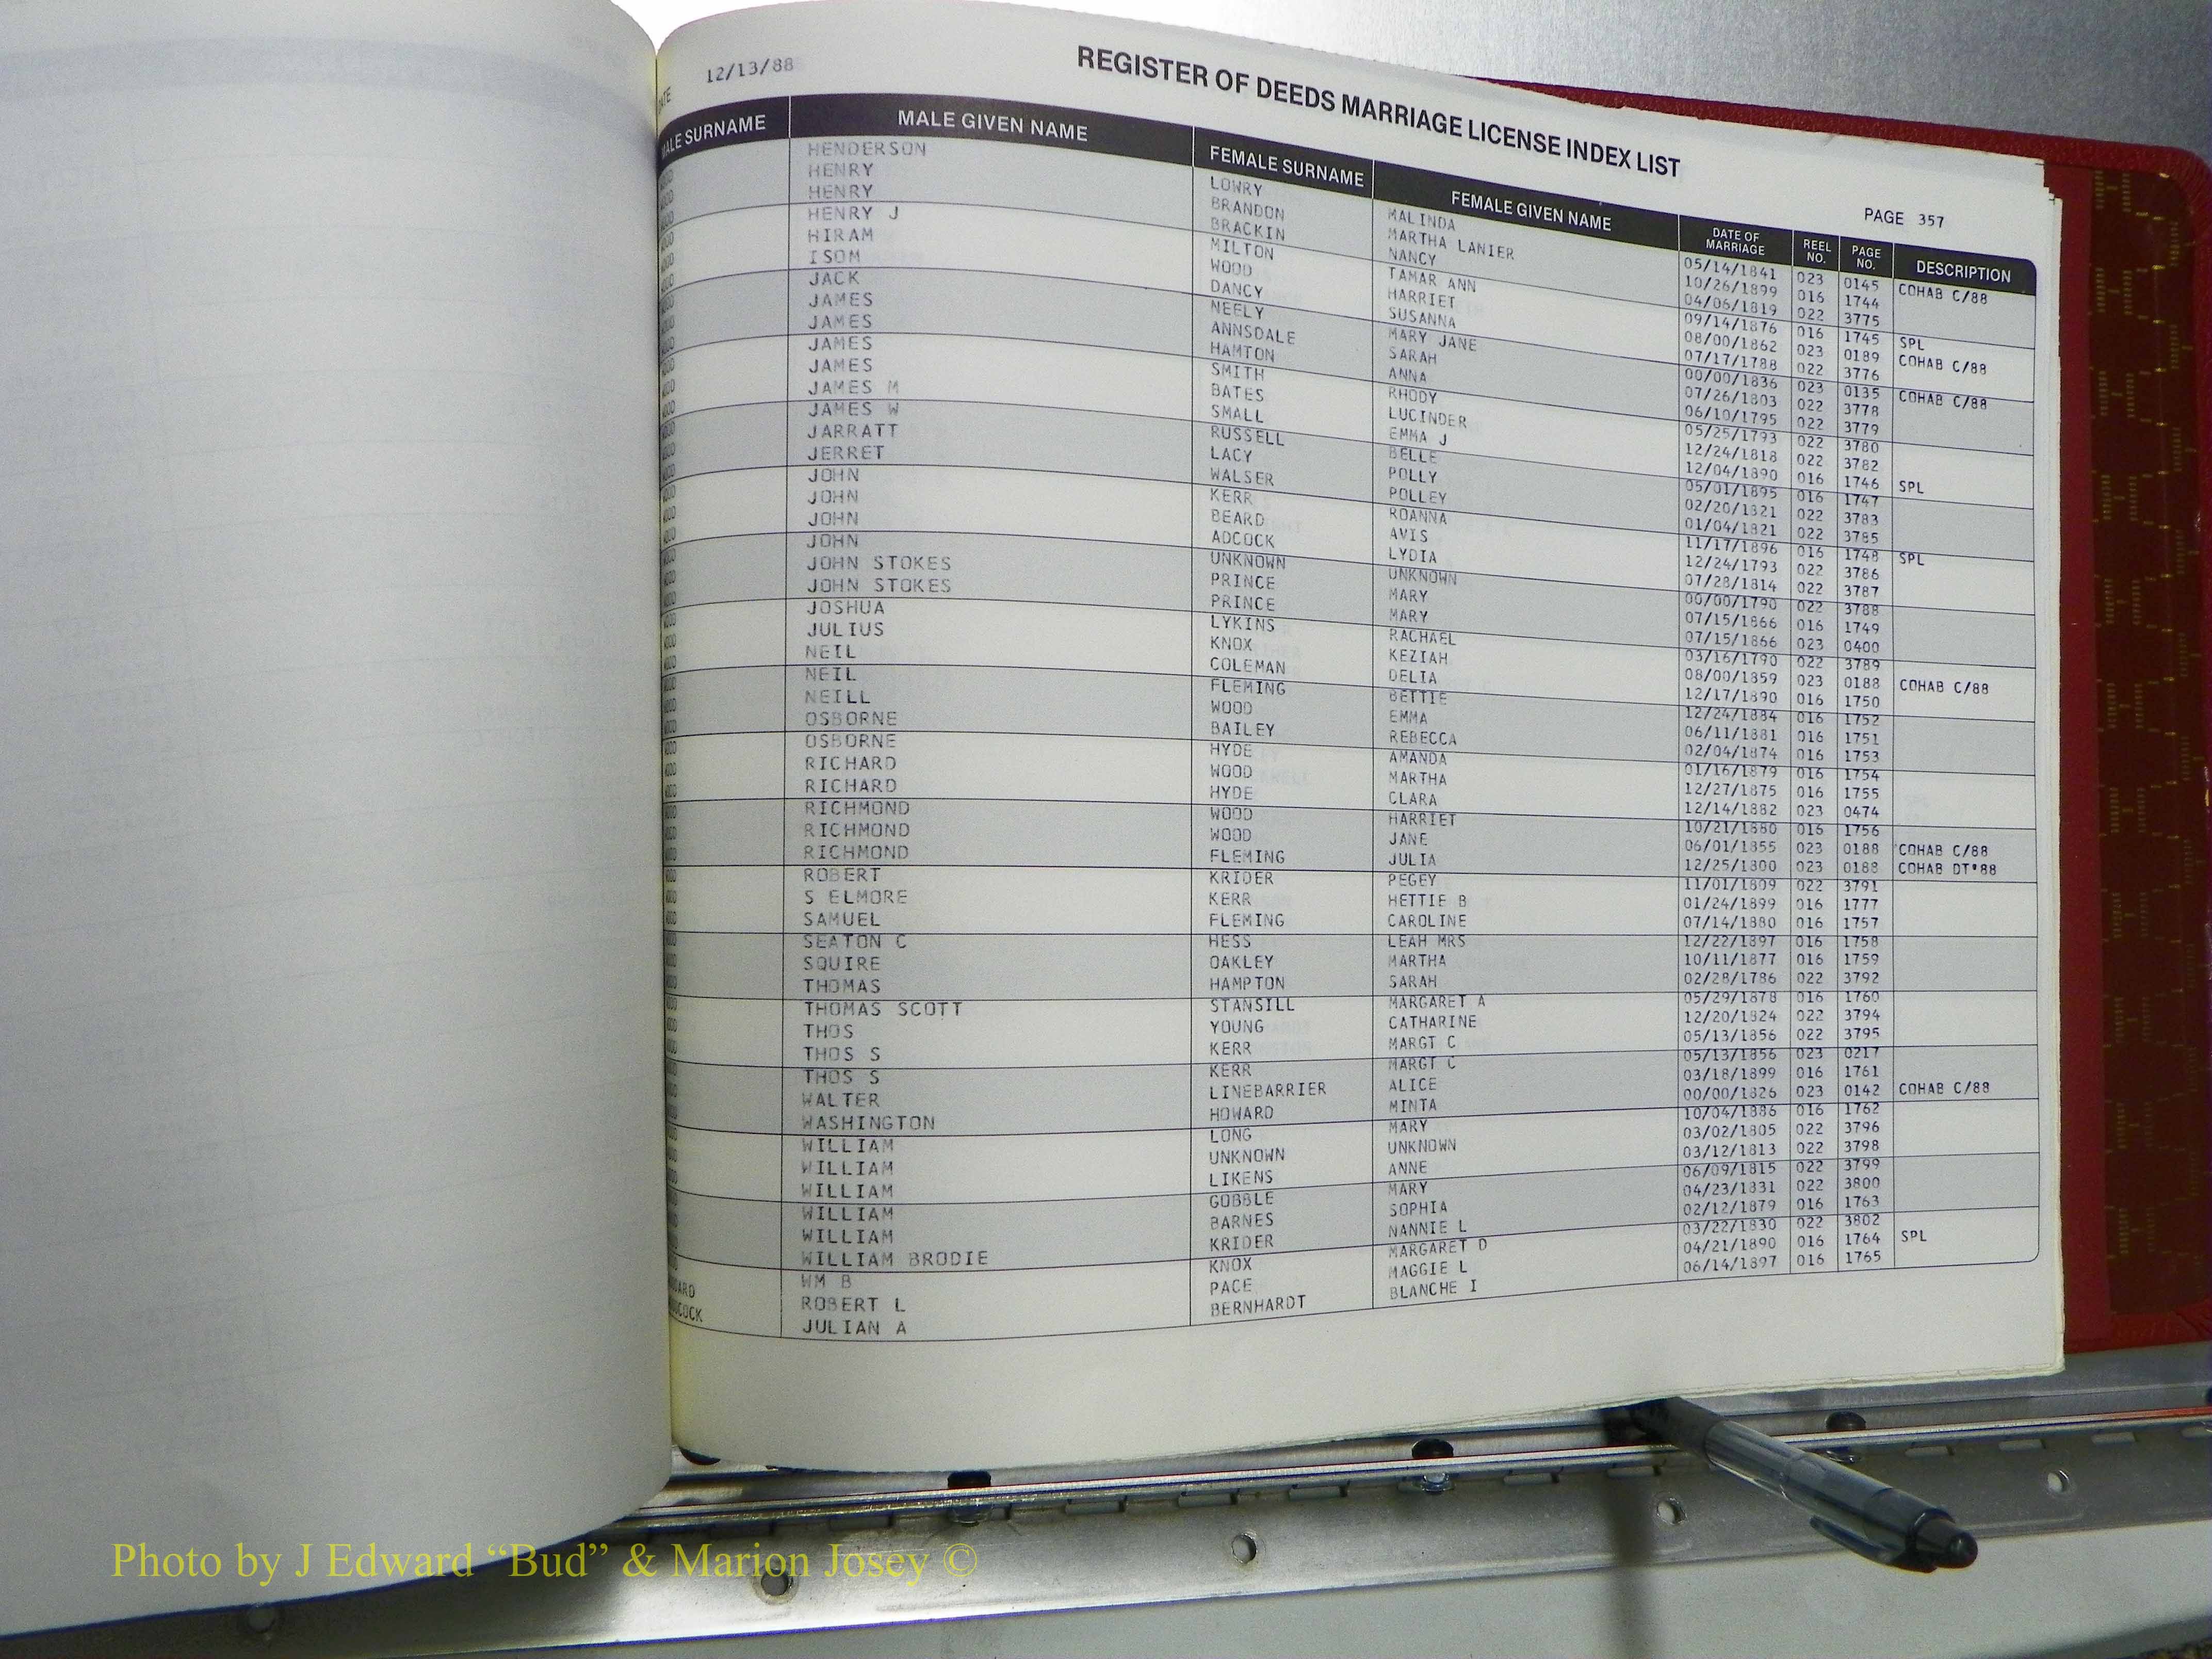 DATE 12/13/88
REGISTER OF DEEDS MARRIAGE LICENSE INDEX LIST
PAGE 357
MALE SURNAME MALE GIVEN NAME FEMALE SURNAME FEMALE GIVEN NAME DATE OF MARRIAGE REEL NO. PAGE NO. DESCRIPTION
WOOD HENDERSON LOWRY MALINDA 05/14/1841 023 0145 COHAB C/88
WOOD HENRY BRANDON MARTHA LANIER 10/26/1899 016 1744
WOOD HENRY BRACKIN NANCY 04/06/1819 022 3775
WOOD HENRY J MILTON TAMAR ANN 09/14/1876 016 1745 SPL
WOOD HIRAM WOOD HARRIET 08/00/1862 023 0189 COHAB C/88
WOOD ISOM DANCY SUSANNA 07/17/1788 022 3776
WOOD JACK NEELY MARY JANE 00/00/1836 023 0135 COHAB C/88
WOOD JAMES ANNSDALE SARAH 07/26/1803 022 3778
WOOD JAMES HAMTON ANNA 06/10/1795 022 3779
WOOD JAMES SMITH RHODY 05/25/1793 022 3780
WOOD JAMES BATES LUCINDER 12/24/1818 022 3782
WOOD JAMES M SMALL EMMA J 12/04/1890 016 1746 SPL
WOOD JAMES W RUSSELL BELLE 05/01/1895 016 1747
WOOD JARRATT LACY POLLY 02/20/1821 022 3783
WOOD JERRET WALSER POLLEY 01/04/1821 022 3785
WOOD JOHN KERR ROANNA 11/17/1896 016 1748 SPL
WOOD JOHN BEARD AVIS 12/24/1793 022 3786
WOOD JOHN ADCOCK LYDIA 07/28/1814 022 3787
WOOD JOHN UNKNOWN UNKNOWN 00/00/1790 022 3788
WOOD JOHN STOKES PRINCE MARY 07/15/1866 016 1749
WOOD JOHN STOKES PRINCE MARY 07/15/1866 023 0400
WOOD JOSHUA LYKINS RACHAEL 03/16/1790 022 3789
WOOD JULIUS KNOX KEZIAH 08/00/1859 023 0188 COHAB C/88
WOOD NEIL COLEMAN DELIA 12/17/1890 016 1750
WOOD NEIL FLEMING BETTIE 12/24/1884 016 1752
WOOD NEILL WOOD EMMA 06/11/1881 016 1751
WOOD OSBORNE BAILEY REBECCA 02/04/1874 016 1753
WOOD OSBORNE HYDE AMANDA 01/16/1879 016 1754
WOOD RICHARD WOOD MARTHA 12/27/1875 016 1755
WOOD RICHARD HYDE CLARA 12/14/1882 023 0474
WOOD RICHMOND WOOD HARRIET 10/21/1880 016 1756
WOOD RICHMOND WOOD JANE 06/01/1855 023 0188 COHAB C/88
WOOD RICHMOND FLEMING JULIA 12/25/1800 023 0188 COHAB DT'88
WOOD ROBERT KRIDER PEGEY 11/01/1809 022 3791
WOOD S ELMORE KERR HETTIE B 01/24/1899 016 1777
WOOD SAMUEL FLEMING CAROLINE 07/14/1880 016 1757
WOOD SEATON C HESS LEAH MRS 12/22/1897 016 1758
WOOD SQUIRE OAKLEY MARTHA 10/11/1877 016 1759
WOOD THOMAS HAMPTON SARAH 02/28/1786 022 3792
WOOD THOMAS SCOTT STANSILL MARGARET A 05/29/1878 016 1760
WOOD THOS YOUNG CATHARINE 12/20/1824 022 3794
WOOD THOS S KERR MARGT C 05/13/1856 022 3795
WOOD THOS S KERR MARGT C 05/13/1856 023 0217
WOOD WALTER LINEBARRIER ALICE 03/18/1899 016 1761
WOOD WASHINGTON HOWARD MINTA 00/00/1826 023 0142 COHAB C/88
WOOD WILLIAM LONG MARY 10/04/1886 016 1762
WOOD WILLIAM UNKNOWN UNKNOWN 03/02/1805 022 3796
WOOD WILLIAM LIKENS ANNE 03/12/1813 022 3798
WOOD WILLIAM GOBBLE MARY 06/09/1815 022 3799
WOOD WILLIAM BARNES SOPHIA 04/23/1831 022 3800
WOOD WILLIAM BRODIE KRIDER NANNIE L 02/12/1879 016 1763
WOOD WM B KNOX MARGARET D 03/22/1830 022 3802
ROBERT L PACE MAGGIE L 04/21/1890 016 1764 SPL
JULIAN A BERNHARDT BLANCHE I 06/14/1897 016 1765
Photo by J Edward “Bud” & Marion Josey ©